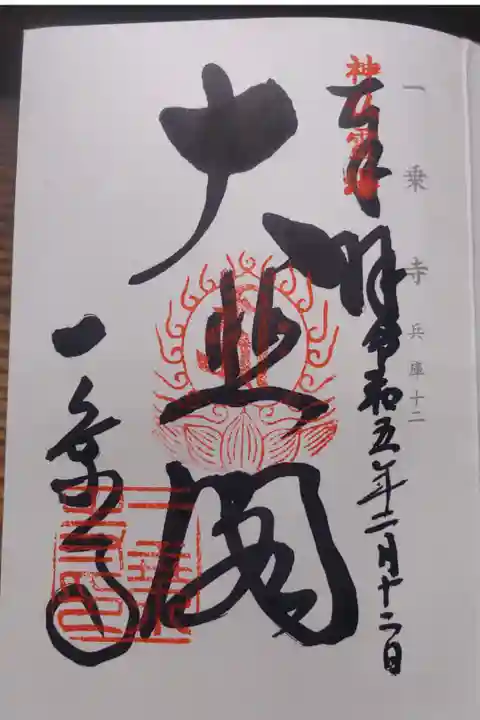 一乗寺 兵庫十二
神仏霊場
奉拝 令和五年二月十二日
大悲閣
一乗寺